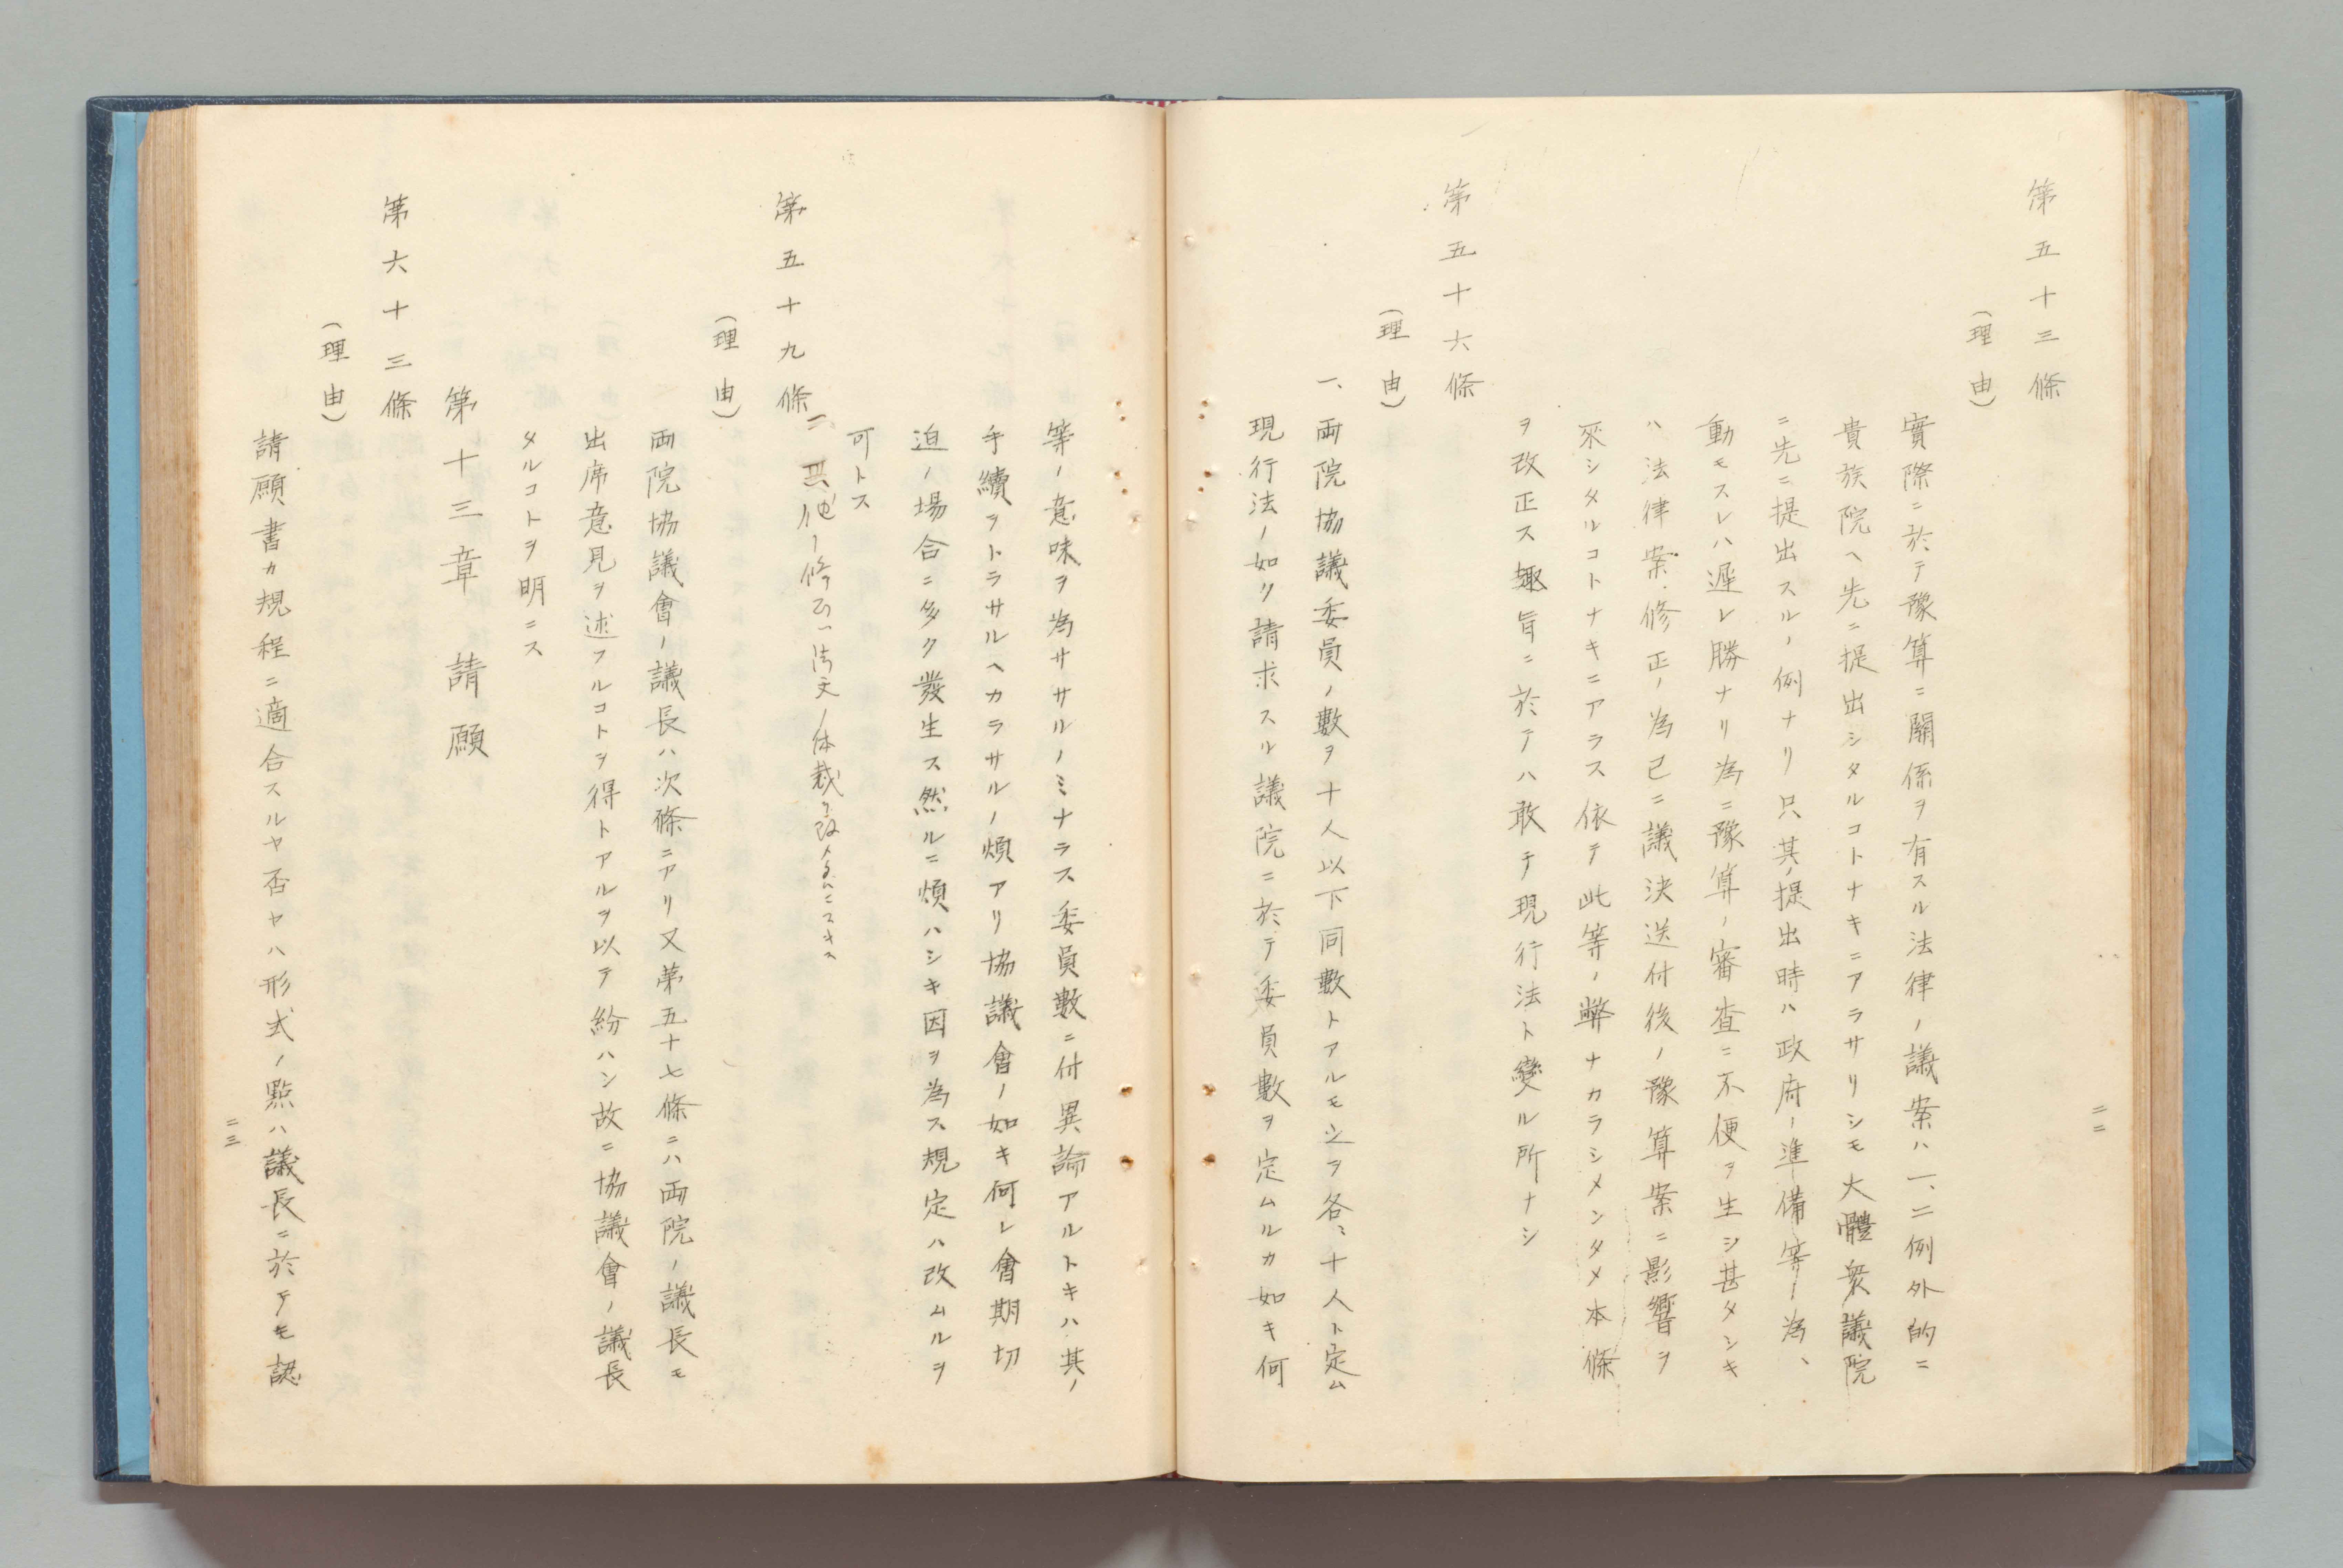 第五十三條
（理由）
實際ニ於テ豫算ニ關係ヲ有スル法律ノ議案ハ一、二例外的ニ
貴族院ヘ先ニ提出シタルコトナキニアラサリシモ大體衆議院
ニ先ニ提出スルノ例ナリ只其ノ提出時ハ政府ノ準備等ノ為、
動モスレハ遲レ勝ナリ為ニ豫算ノ審査ニ不便ヲ生シ甚タシキ
ハ法律案ノ修正ノ為已ニ議決送付後ノ豫算案ニ影響ヲ
來シタルコトナキニアラス依テ此等ノ弊ナカラシメンタメ本條
ヲ改正ス趣旨ニ於テハ敢テ現行法ト變ル所ナシ
第五十六條
（理由）
一、兩院協議委員ノ數ヲ十人以下同數トアルモ之ヲ各〻十人ト定ム
現行法ノ如ク請求スル議院ニ於テ委員數ヲ定ムルカ如キ何
二二
等ノ意味ヲ為ササルノミナラス委員數ニ付異論アルトキハ其ノ
手續ヲトラサルヘカラサルノ煩アリ協議會ノ如キ何レ會期切
迫ノ場合ニ多ク發生ス然ルニ煩ハシキ因ヲ為ス規定ハ改ムルヲ
可トス
二、其他ノ修正ハ法文ノ体裁ヲ改メタルニスキス
第五十九條
（理由）
兩院協議會ノ議長ハ次條ニアリ又第五十七條ニハ兩院ノ議長モ
出席意見ヲ述フルコトヲ得トアルヲ以テ紛ハシ故ニ協議會ノ議長
タルコトヲ明ニス
第十三章　請願
第六十三條
（理由）
請願書カ規程ニ適合スルヤ否ヤハ形式ノ點ハ議長ニ於テモ認
二三